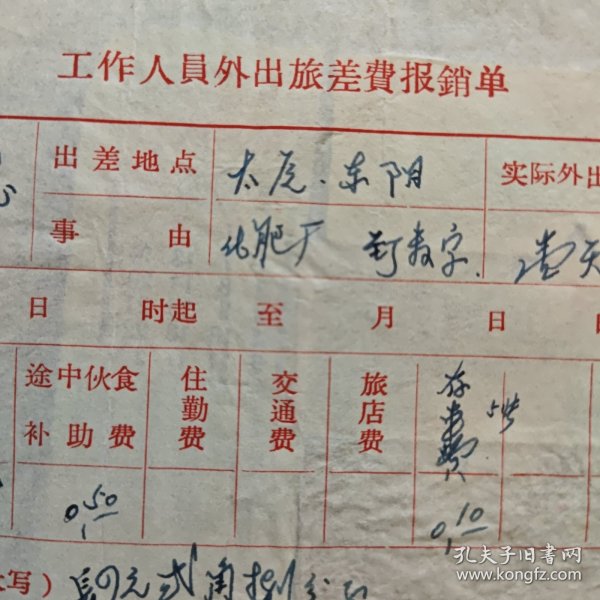 工作人員外出旅差費报銷单
出差地点 太原、东阳 实际外出
事由 化肥厂
日 时起 至 月 日
途中伙食补助費 住勤費 交通費 旅店費 存車費
0.50 0.10
大写) 元贰角捌分
孔夫子旧书网
www.kongfz.com